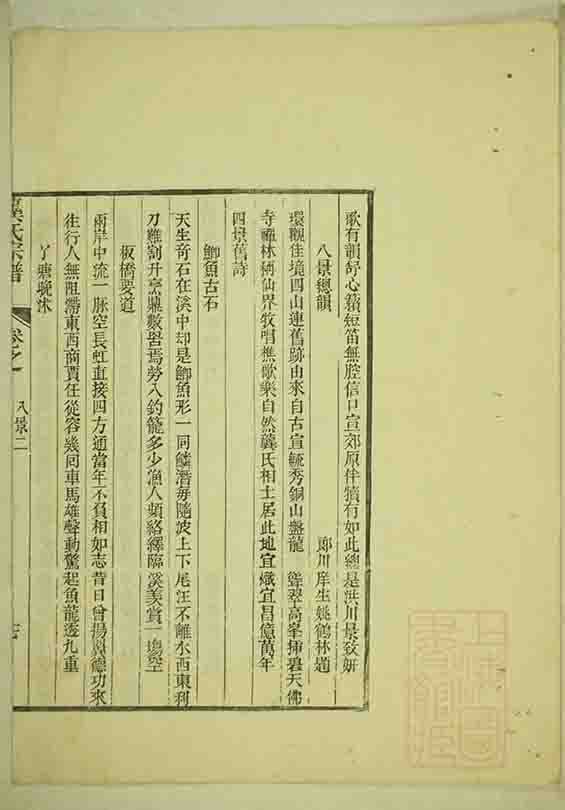 歌有韻舒心籟短笛無腔信口宣郊原伴犢有如此總是洪川景致妍
八景總韻
鄖川庠生姚鶴林題
環觀佳境四山連舊跡由來自古宣毓秀銅山盤龍 聳翠高峯揷碧天佛
寺禪林稱仙界牧唱樵歌樂自然龔氏相土居此地宜熾宜昌億萬年
四景舊詩
鯽魚古石
天生奇石在溪中却是鯽魚形一同鱗潛每隨波上下尾汪不離水西東利
刀難割升烹鼎數罟焉勞入釣籠多少漁人頻絡繹臨溪羨賞一塲空
板橋要道
兩岸中流一脉空長虹直接四方通當年不負相如志昔日曾揚翼德功來
往行人無阻滯東西商賈任從容幾同車馬雄聲動驚起魚龍透九重
塘晚沐
氏宗譜 卷之 八景二